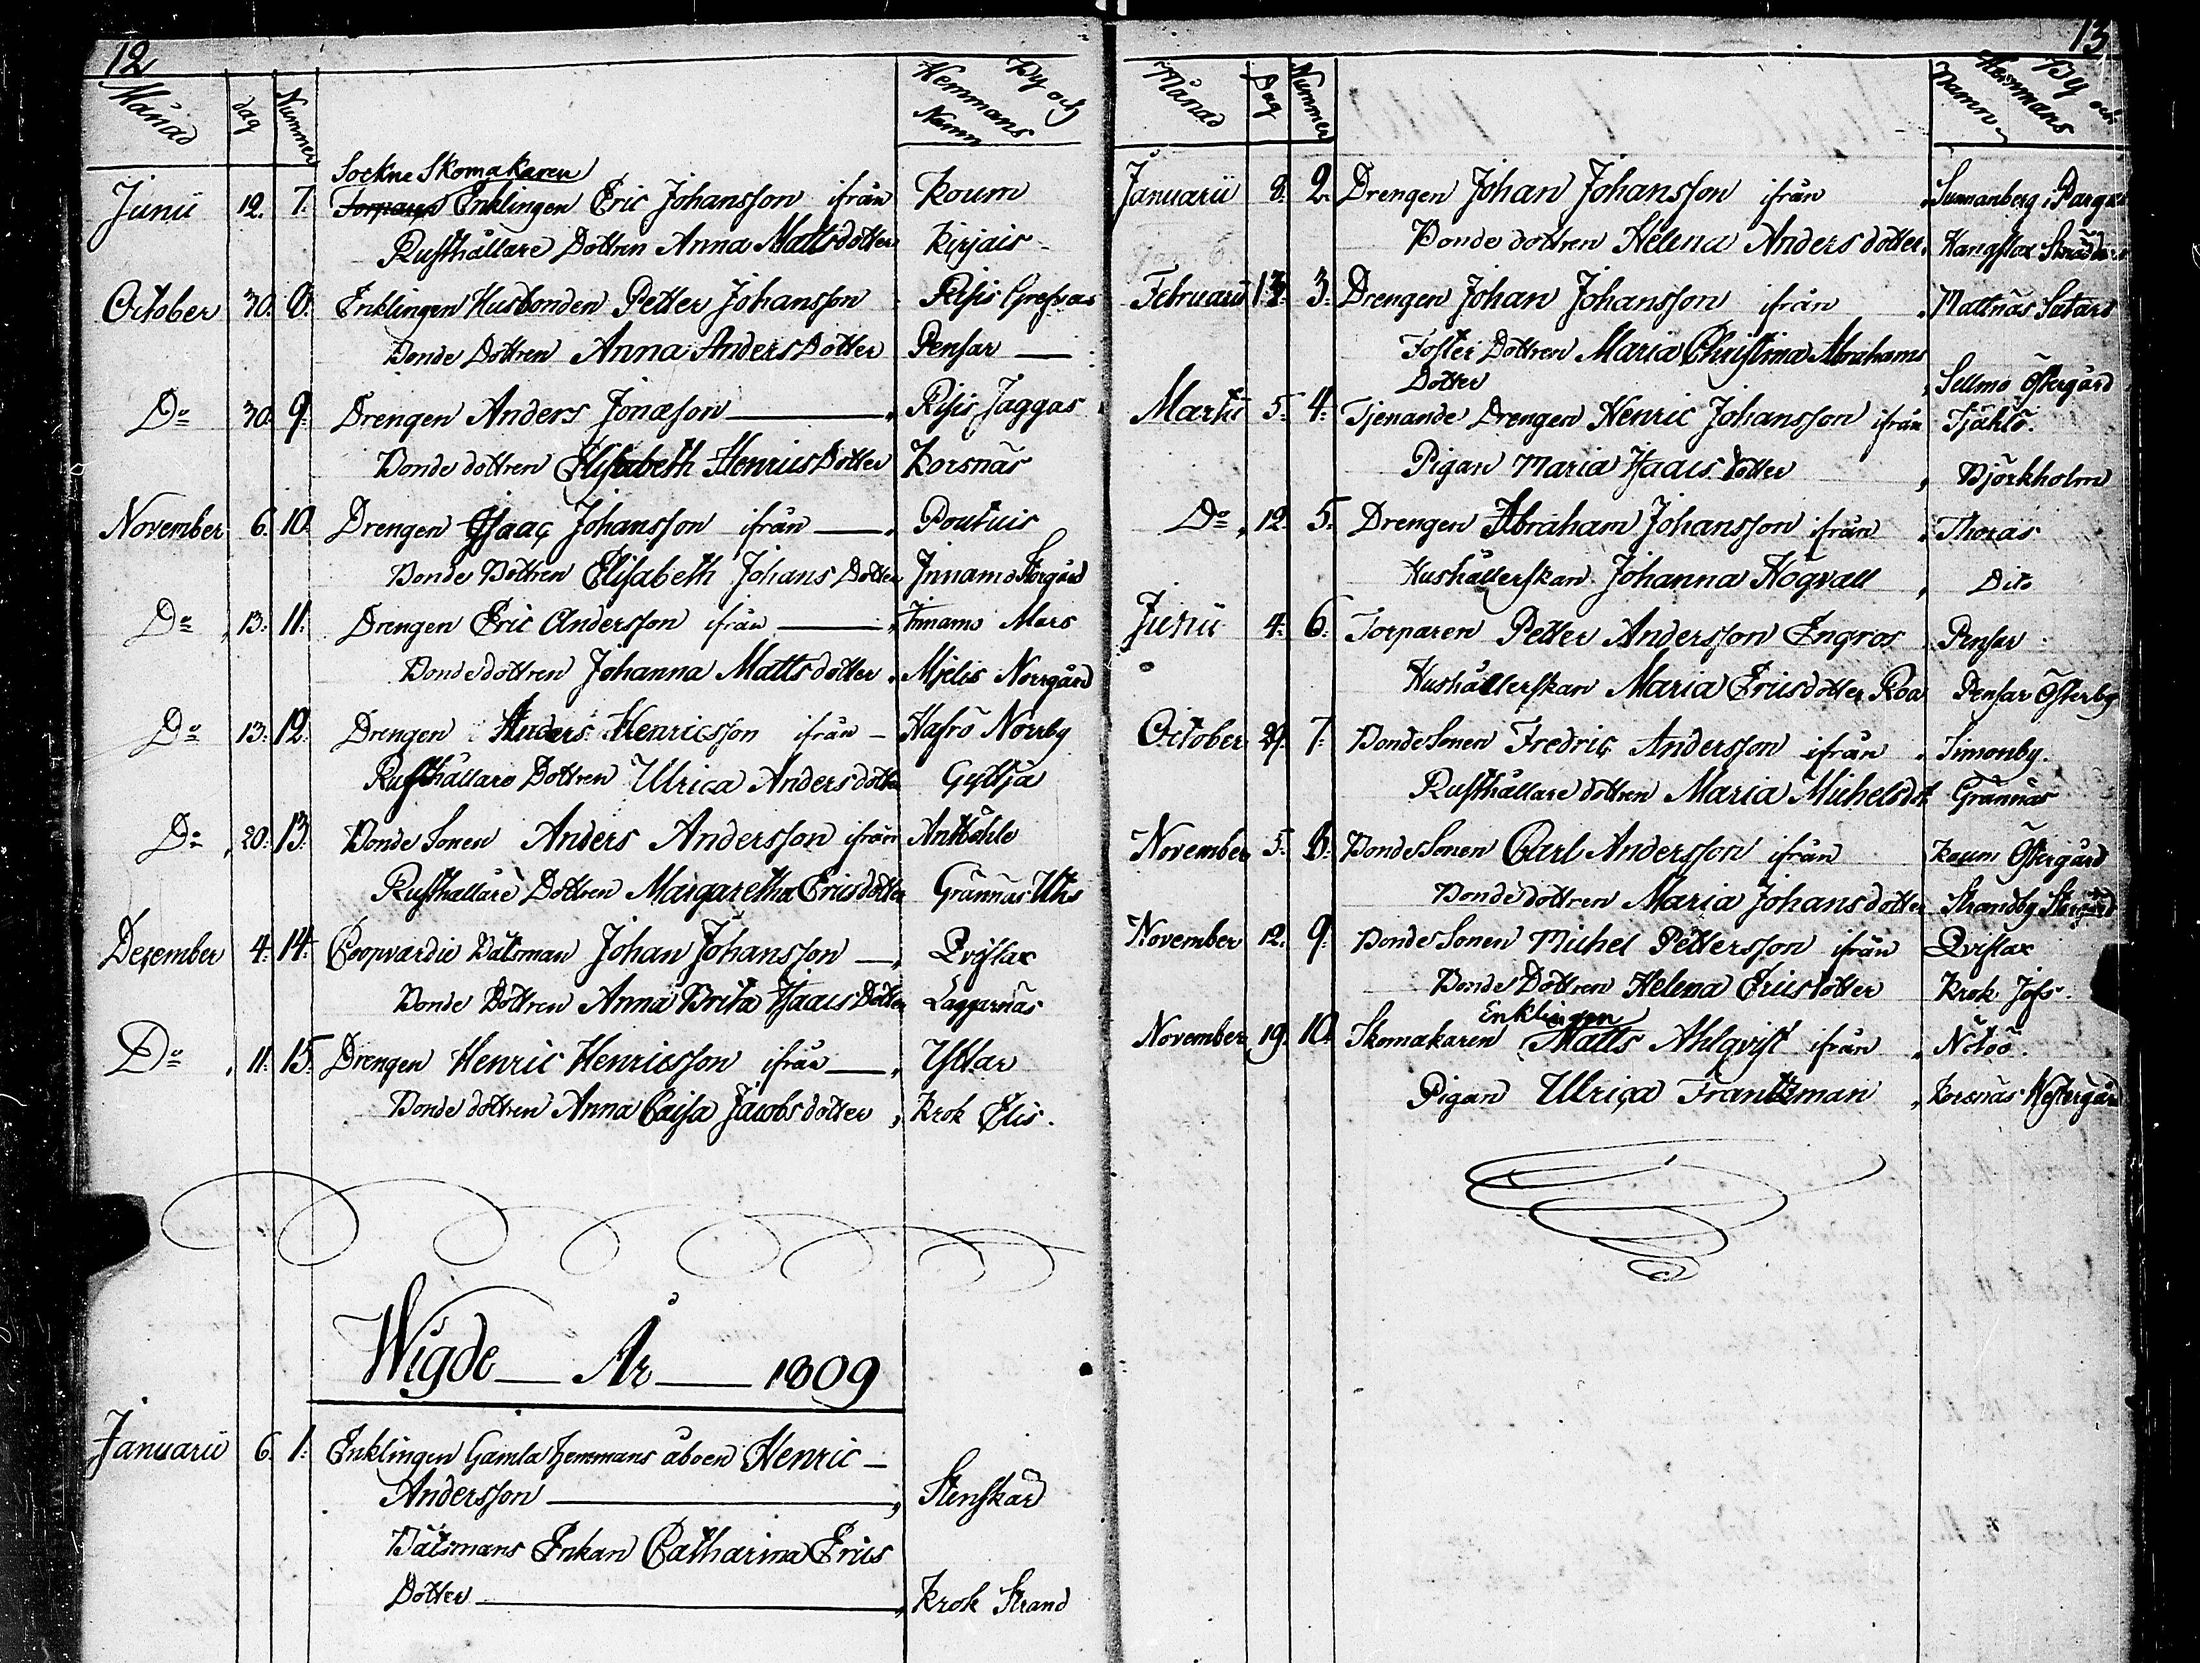 12
Månad dag Nummer By och Hemmans Namn
Sockne Skomakaren
Junii 12. 7. Torparen Enklingen Eric Johansson ifrån Koum
Rusthållare Dottren Anna Mattsdotter Kirjais
October 30. 8. Enklingen Husbonden Petter Johansson Risis Grefvas
Bonde Dottren Anna Anders Dotter Pensar
Do 30. 9. Drengen Anders Jonæson Risis Jaggas
Bonde dottren Elisabeth Henrics Dotter Korsnäs
November 6. 10. Drengen Isaac Johansson ifrån Poutuis
Bonde Dottren Elisabeth Johans Dotter Innamo Storgård
Do 13. 11. Drengen Eric Andersson ifrån Innamo Mars
Bondedottren Johanna Matts dotter Mielis Norrgård
Do 13. 12. Drengen Anders Henricsson ifrån Hafrö Norrby
Rusthållare Dottren Ulrica Anders dotter Gyttja
Do 20. 13. Bonde Sonen Anders Andersson ifrån Antböhle
Rusthållare Dottren Margaretha Ericsdotter Grännäs Uhrs
December 4. 14. Coopvardie Båtsman Johan Johansson Qvislax
Bonde Dottren Anna Brita Isaacs Dotter Laggarnäs
Do 11. 15. Drengen Henric Henricsson ifrån Yttar
Bonde dottren Anna Caisa Jacobs dotter Krok Elis.
Wigde År 1809
Januarii 6. 1. Enklingen Gamla hemmans åboen Henric
Andersson Stenskär
Båtsmans Enkan Catharina Erics
Dotter Krok Strand
13
Månad Dag Nummer By och Hemmans Namn
Januarii 8. 2. Drengen Johan Johansson ifrån Sunnanberg i Pargas
Bonde dottren Helena Anders dotter Kangslax
Februarii 13. 3. Drengen Johan Johansson ifrån Mattnäs
Foster Dottren Maria Christina Abrahams
Dotter Sellmo Östergård
Martii 5. 4. Tjenande Drengen Henric Johansson ifrån Tjählö.
Pigan Maria Isaacs dotter Björkholm
Do 12. 5. Drengen Abraham Johansson ifrån Thoras
Hushållerskan Johanna Högvall Dito
Junii 4. 6. Torparen Petter Andersson Engros Pensar
Hushållerskan Maria Ericsdotter Roa Pensar Österby
October 29. 7. Bonde Sonen Fredric Andersson ifrån Simonby.
Rusthållare dottren Maria Michelsdr Grännäs
November 5. 8. Bonde Sonen Carl Andersson ifrån Koum Östergård
Bonde dottren Maria Johansdotter Strandby Storgård
November 12. 9. Bonde Sonen Michel Pettersson ifrån Qvislax
Bonde Dottren Helena Ericsdotter Krok Jofs.
Enklingen
November 19. 10. Skomakaren Matts Ahlqvist ifrån Nötöö.
Pigan Ulrica Frantzman Korsnäs Westergård